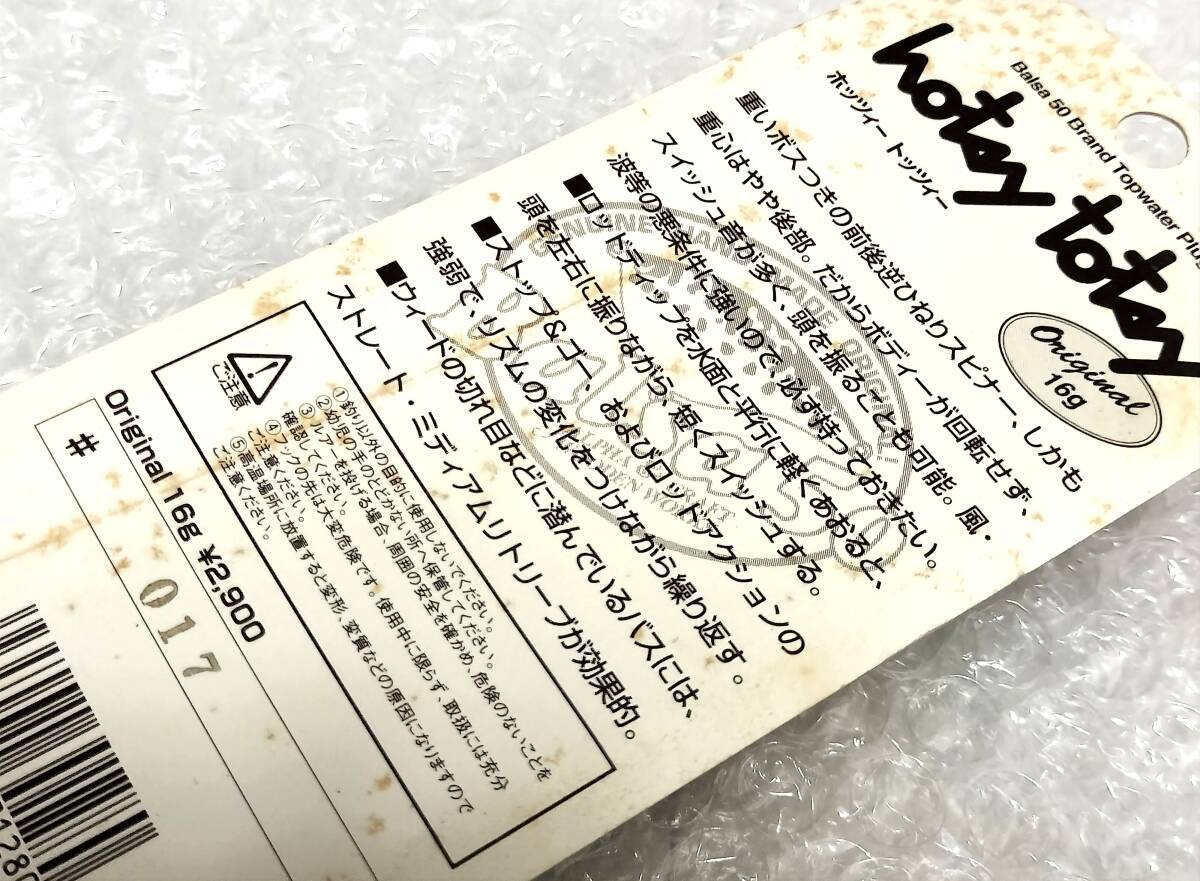 Balsa 50 Brand Topwater Plug
hotsy totsy
ホッツィー トッツィー
Original
16g
重いボスつきの前後逆ひねりスピナー、しかも
重心はやや後部。だからボディーが回転せず、
スイッシュ音が多く、頭を振ることも可能。風・
波等の悪条件に強いので、必ず持っておきたい。
■ロッドティップを水面と平行に軽くあおると、
頭を左右に振りながら、短くスイッシュする。
■ストップ&ゴー、およびロッドアクションの
強弱で、リズムの変化をつけながら繰り返す。
■ウィードの切れ目などに潜んでいるバスには、
ストレート・ミディアムリトリーブが効果的。
ご注意
①釣り以外の目的に使用しないでください。
②幼児の手のとどかない所へ保管してください。
③ルアーを投げる場合、周囲の安全を確かめ、危険のないことを
確認してください。
④フックの先は大変危険です。使用中に限らず、取扱には充分
ご注意ください。
⑤高温場所に放置すると変形、変質などの原因になりますので
ご注意ください。
Original 16g ¥2,900
# 017